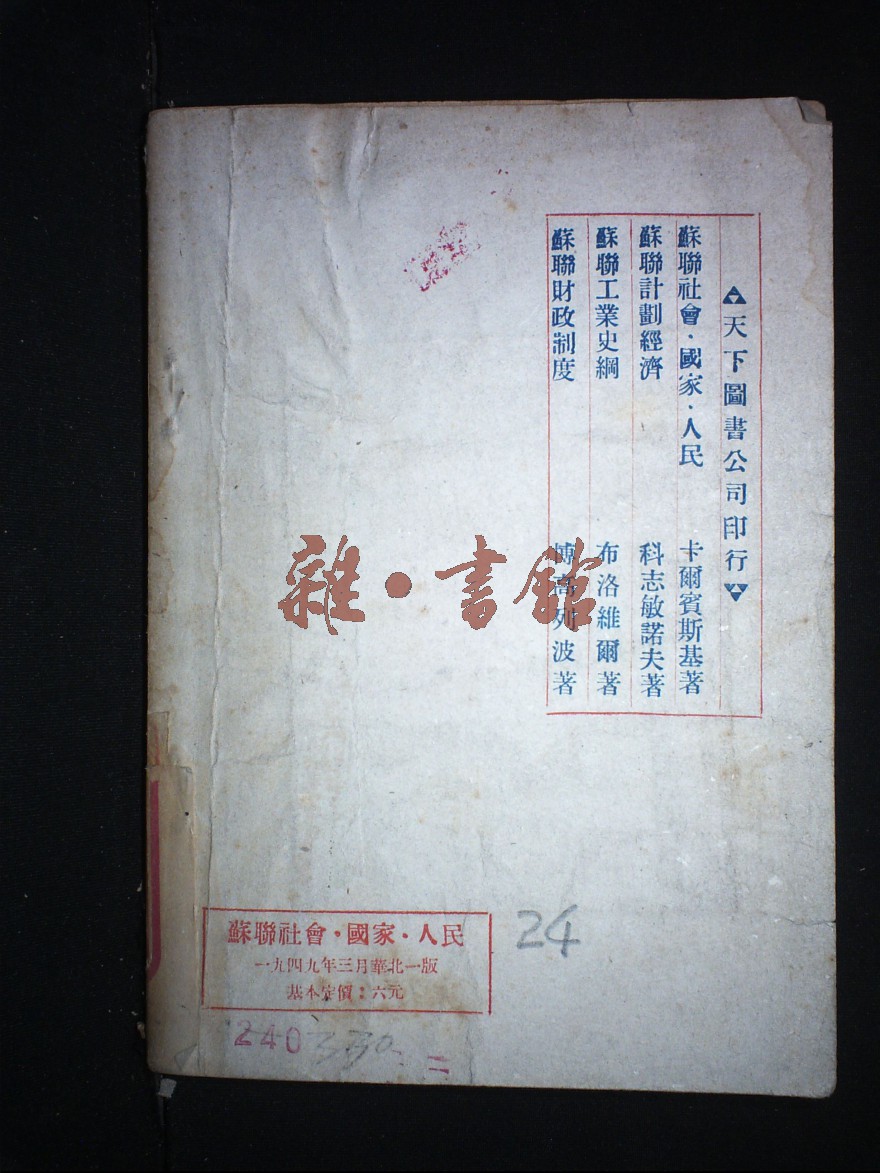 ▲天下圖書公司印行▼
蘇聯社會·國家·人民 卡爾賓斯基著
蘇聯計劃經濟 科志敏諾夫著
蘇聯工業史綱 布洛維爾著
蘇聯財政制度 博高列波著
雜·書館
蘇聯社會·國家·人民
一九四九年三月華北一版
基本定價：六元
24
240